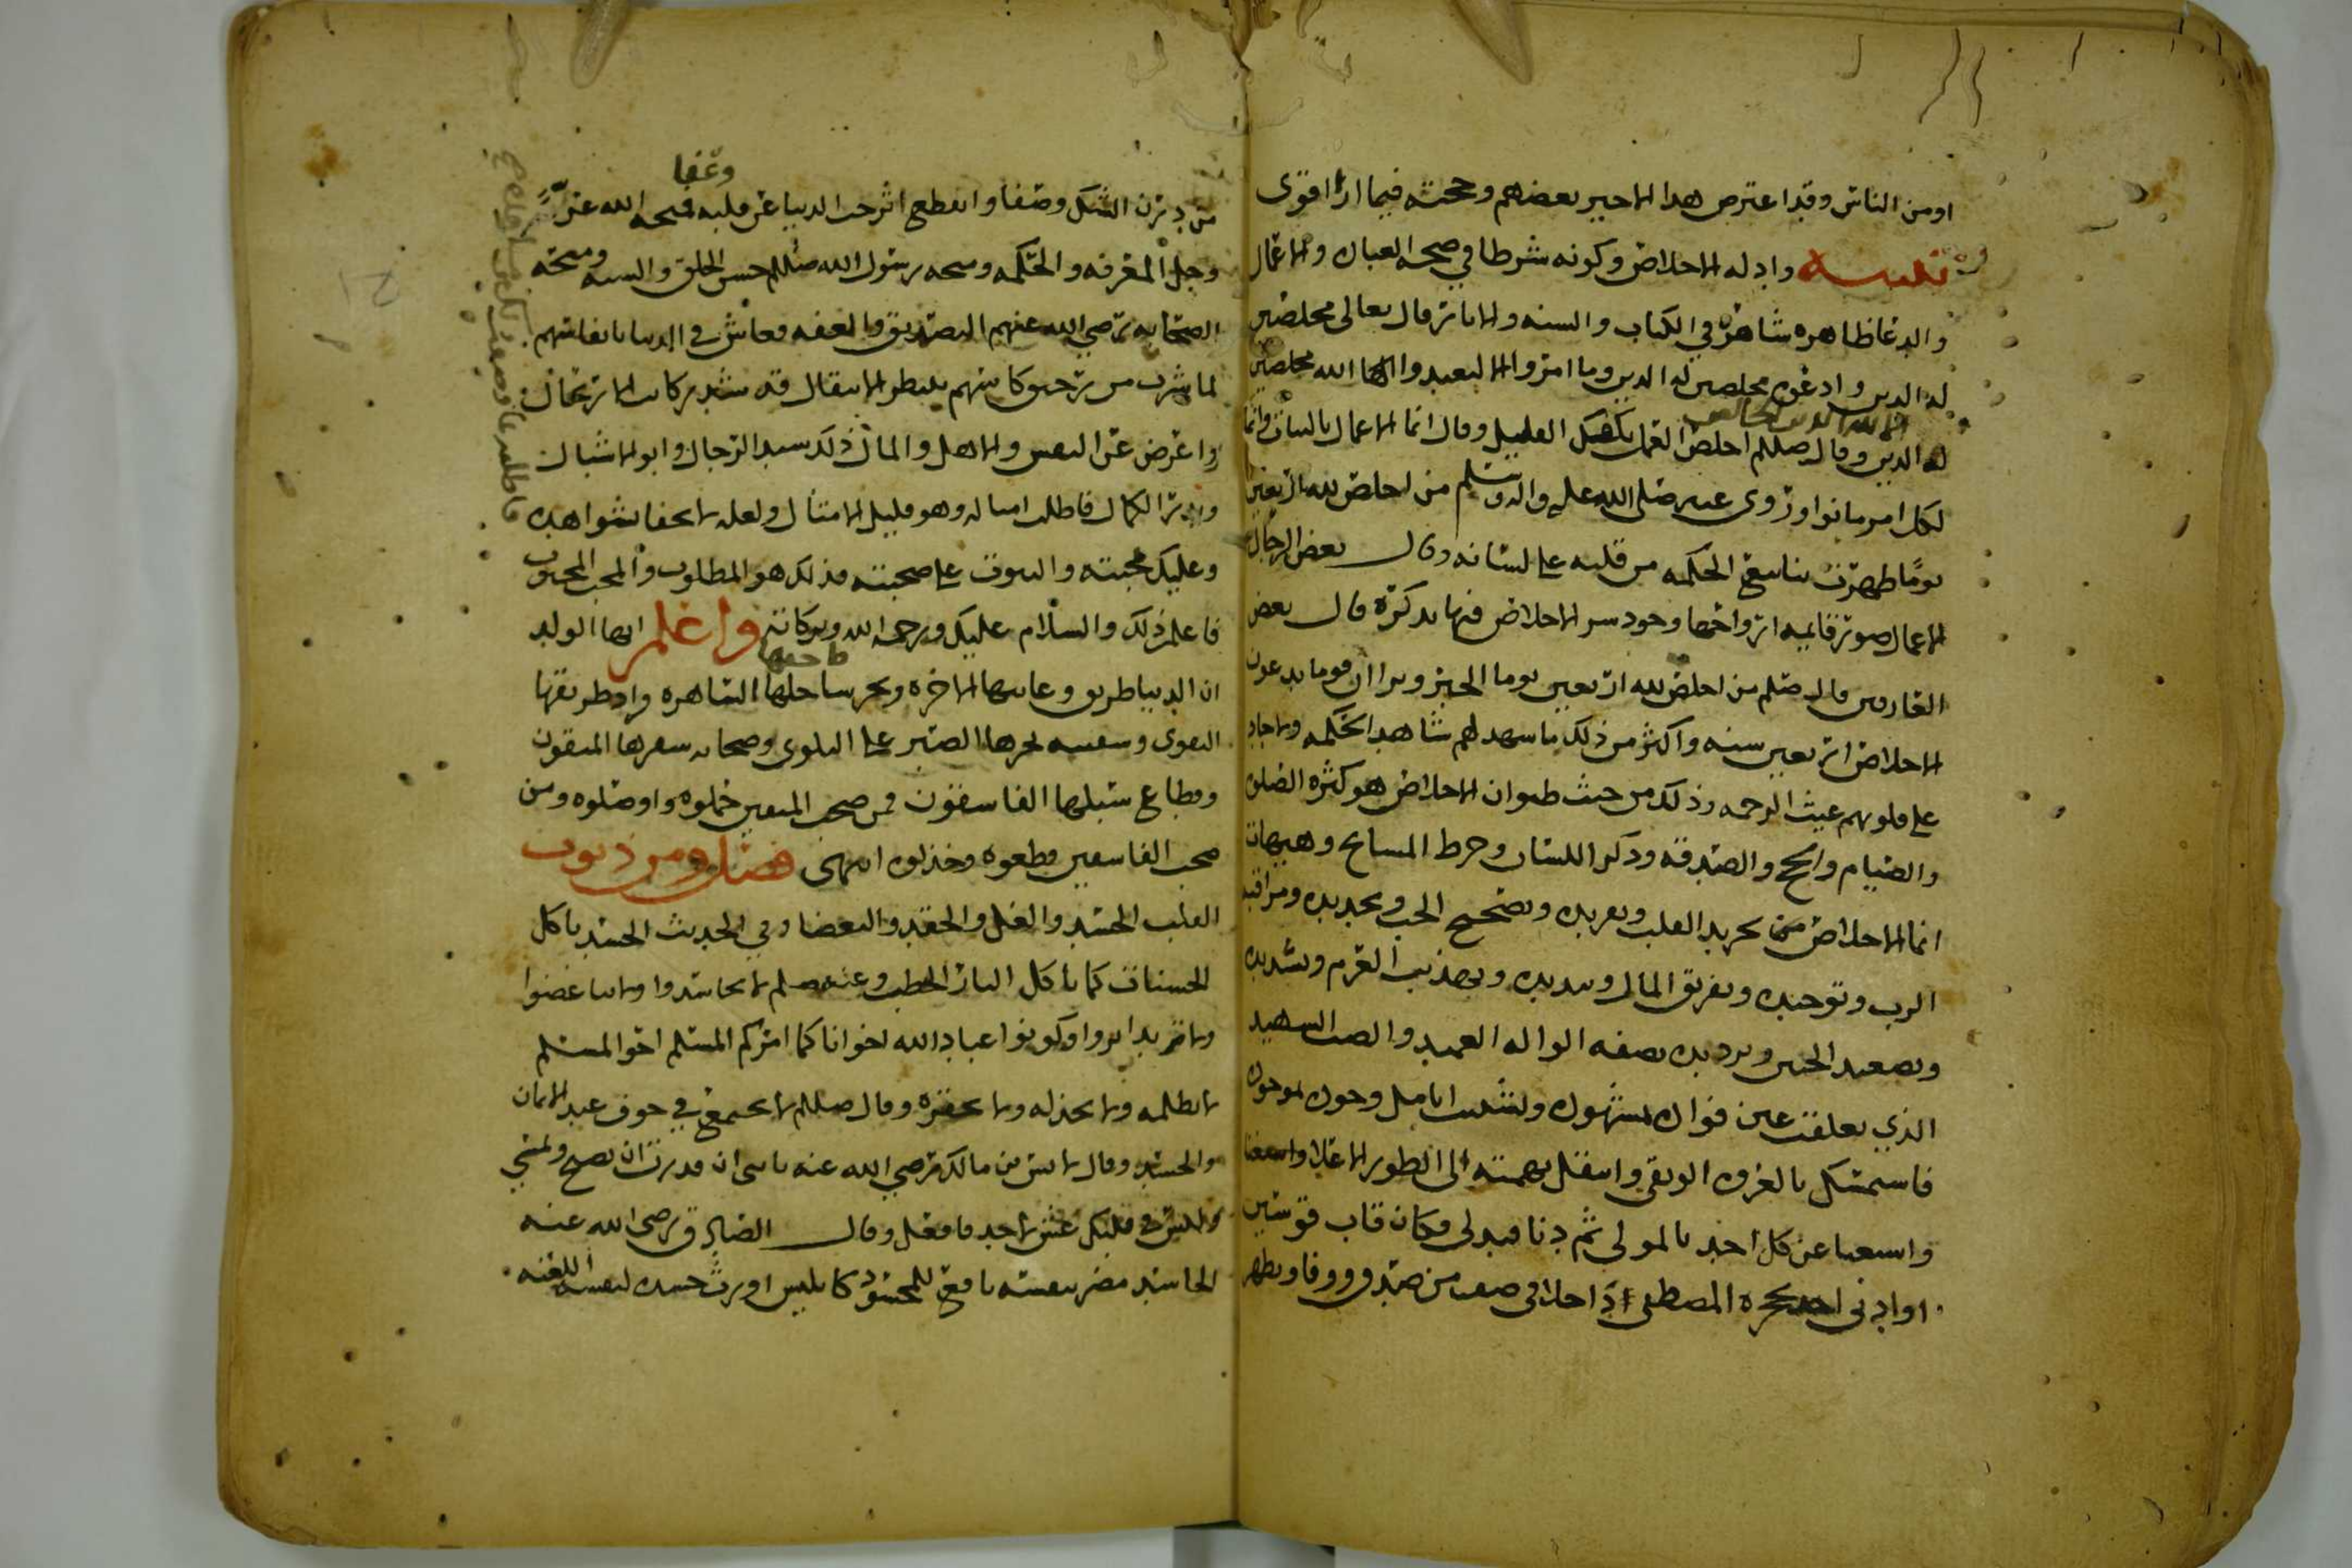 او من الناس وقد اعترض هذا الاخير بعضهم وحجته فيما ارا اقوى
تنبيه وادله الاخلاص وكونه شرطا في صحه العباده والاعمال
والدعا ظاهره شاهره في الكتاب والسنه والاثار قال تعالى مخلصين
له الدين وادعوه مخلصين له الدين وما امروا الا ليعبدوا الله مخلصين
الا لله الدين الخالص
له الدين وقال صللم اخلص العمل يكفيك القليل وقال انما الاعمال بالنيات وانما
لكل امر ما نوا وروى عنه صلى الله عليه واله وسلم من اخلص لله اربعين
يومًا ظهرت ينابيع الحكمه من قلبه على لسانه وقال بعض الرجال
الاعمال صور قايمه ارواحها وجود سر الاخلاص فيها تذكره قال بعض
العارفين قال صللم من اخلص لله اربعين يوما الخبر ونرا ان قوما يدعون
الاخلاص اربعين سنه واكثر من ذلك ما شهد لهم شاهد الحكمه ولا جاد
على قلوبهم غيث الرحمه وذلك من حيث ظنوا ان الاخلاص هو كثره الصلوه
والصيام والحج والصدقه وذكر اللسان وخرط المسابح وهيهات
انما الاخلاص تجريد القلب وتفريده وتصحيح الحب وتجديده ومراقبه
الرب وتوحيده وتفريق المال وتبديده وتهذيب العزم وتشديده
وتصعيد الحنين وترديده بصفه الواله العميد والصب الشهيد
الذي تعلقت عين فواده بمشهوده وتشبثت انامل وجوده بموجوده
فاستمسك بالعروه الوثقى وانتقل بهمته الى الطور الاعلا
واستغنا عن كل احد بالمولى ثم دنا فتدلى فكان قاب قوسين
او ادنى بحجره المصطفى اذ اخلا في من صدق ووفا وتطهر
وعفا
من درن الشك وصفا وانقطع اثر حب الدنيا عن قلبه فمنحه الله عز
وجل المعرفه والحكمه ومنحه رسول الله صللم حسن الخلق والسنه ومنحه
الصحابه رضي الله عنهم التصديق والعفه فعاش في الدنيا بانفاسهم
لما شرب من رحيق كاسهم ينتظر الانتقال قد شد ركاب الارتحال
واعرض عن النفس والاهل والمال ذلك سيد الرجال وابو الاشبال
الكمال فاطلب امثاله وهو قليل الامثال ولعله لا تخفا شواهده
وعليك بمحبته والثبوت على صحبته فذلك هو المطلوب والمحب المحبوب
فاعلم ذلك والسلام عليك ورحمه الله وبركاته واعلم ايها الولد
ان الدنيا طريق وغايتها الاخره وبحر ساحلها الساهره وزاد طريقها
التقوى وسفينه بحرها الصبر على البلوى وصحابه سفرها المتقون
وقطاع سبيلها الفاسقون فمن صحب المتقين حملوه واوصلوه ومن
صحب الفاسقين قطعوه وخذلوه انتهى فصل ومن ذنوب
القلب الحسد والغل والحقد والبغضا وفي الحديث الحسد ياكل
الحسنات كما تاكل النار الحطب وعنه صللم لا تحاسدوا ولا تباغضوا
ولا تدابروا وكونوا عباد الله اخوانا كما امركم المسلم اخو المسلم
لا يظلمه ولا يخذله ولا يحقره وقال صللم لا يجتمع في جوف عبد الايمان
والحسد وقال لانس بن مالك رضي الله عنه يا بني ان قدرت ان تصبح وتمسي
وليس في قلبك غش لاحد فافعل وقال الصادق رضي الله عنه
الحاسد مضر بنفسه نافع للمحسود كابليس اورث حسده لنفسه اللعنه